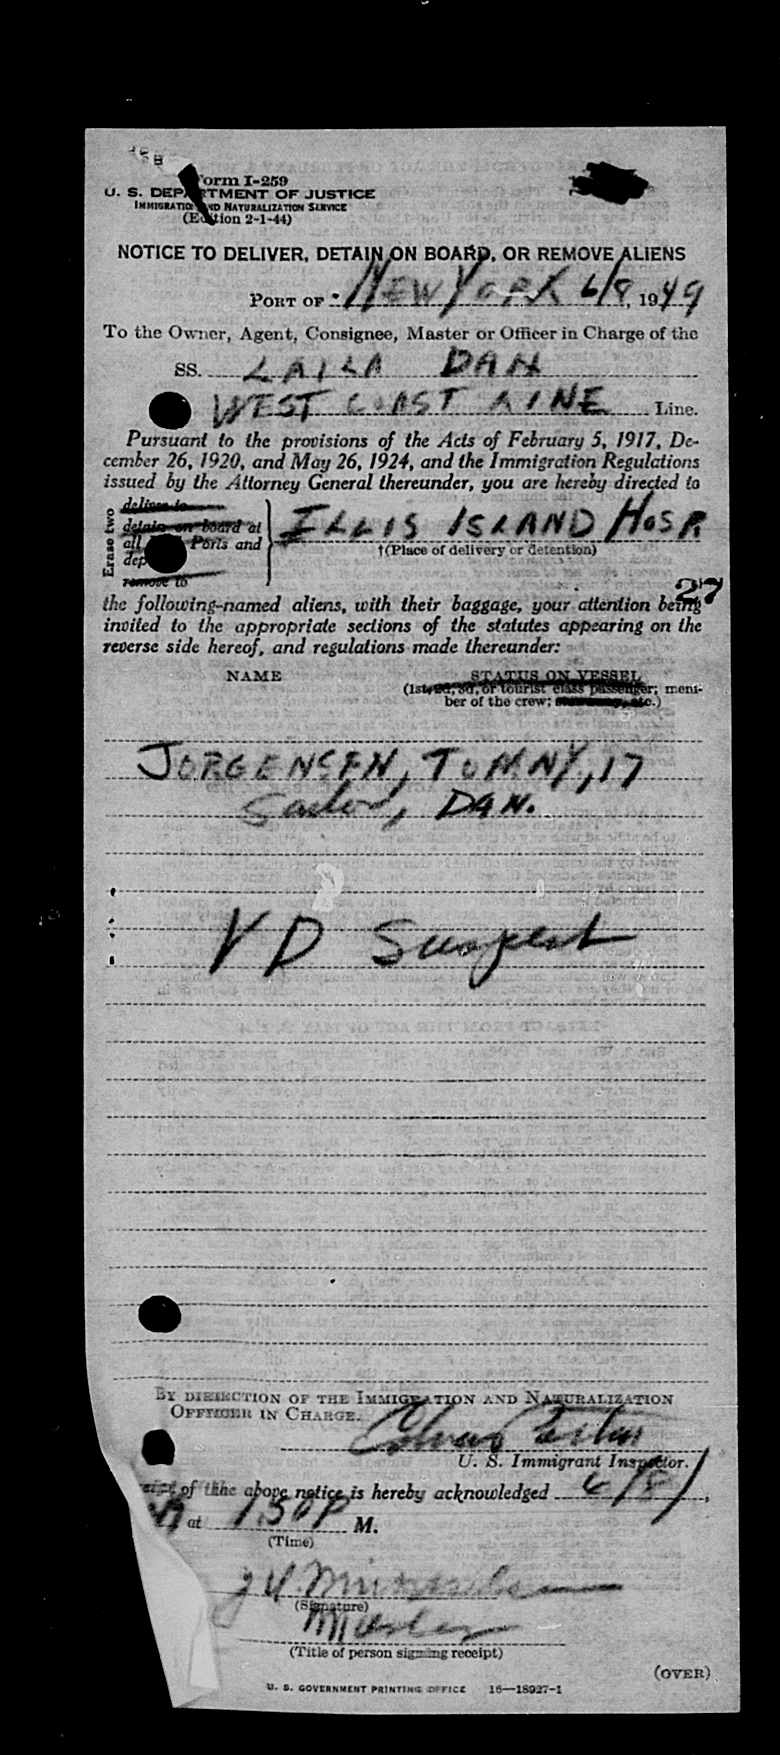 Form I-259
U. S. DEPARTMENT OF JUSTICE
IMMIGRATION AND NATURALIZATION SERVICE
(Edition 2-1-44)
NOTICE TO DELIVER, DETAIN ON BOARD, OR REMOVE ALIENS
PORT OF NEW YORK 6/8, 1949
To the Owner, Agent, Consignee, Master or Officer in Charge of the
SS. LAILA DAN
WEST COAST LINE Line.
Pursuant to the provisions of the Acts of February 5, 1917, De-
cember 26, 1920, and May 26, 1924, and the Immigration Regulations
issued by the Attorney General thereunder, you are hereby directed to
Erase two
deliver to
detain on board at
all Ports and
remove to
ELLIS ISLAND HOSP
†(Place of delivery or detention)
27
the following-named aliens, with their baggage, your attention being
invited to the appropriate sections of the statutes appearing on the
reverse side hereof, and regulations made thereunder:
NAME STATUS ON VESSEL
(1st, 2d, 3d, or tourist class passenger; mem-
ber of the crew; etc.)
JORGENSEN, TOMMY, 17
Sailor, DAN.
VD Suspect
BY DIRECTION OF THE IMMIGRATION AND NATURALIZATION
OFFICER IN CHARGE.
U. S. Immigrant Inspector.
of the above notice is hereby acknowledged 6/8/,
at 1:50 P M.
(Time)
(Signature)
Master
(Title of person signing receipt)
(OVER)
U. S. GOVERNMENT PRINTING OFFICE 16—18927-1